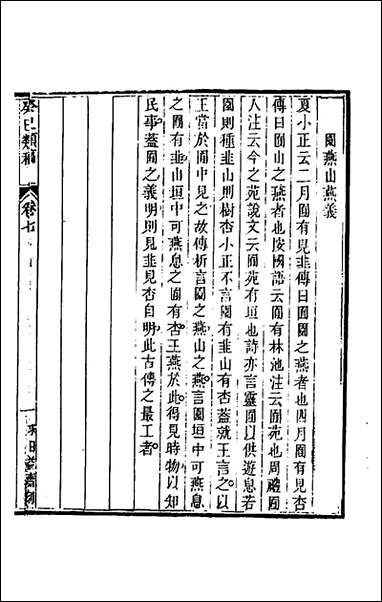 囿燕山燕義
夏小正云二月囿有見韭傳曰囿園之燕者也四月囿有見杏
傳曰囿山之燕者也按國語云囿有林池注云囿苑也周禮囿
人注云今之苑說文云囿苑有垣也詩亦言靈囿以供遊息若
園則種韭山則樹杏小正不言園有韭山有杏蓋就王言之以
王當於囿中見之故傳析言園之燕山之燕言園垣中可燕息
之囿有韭山垣中可燕息之囿有杏王燕於此得見時物以知
民事蓋囿之義明則見韭見杏自明此古傳之最工者
癸巳類稿
卷七